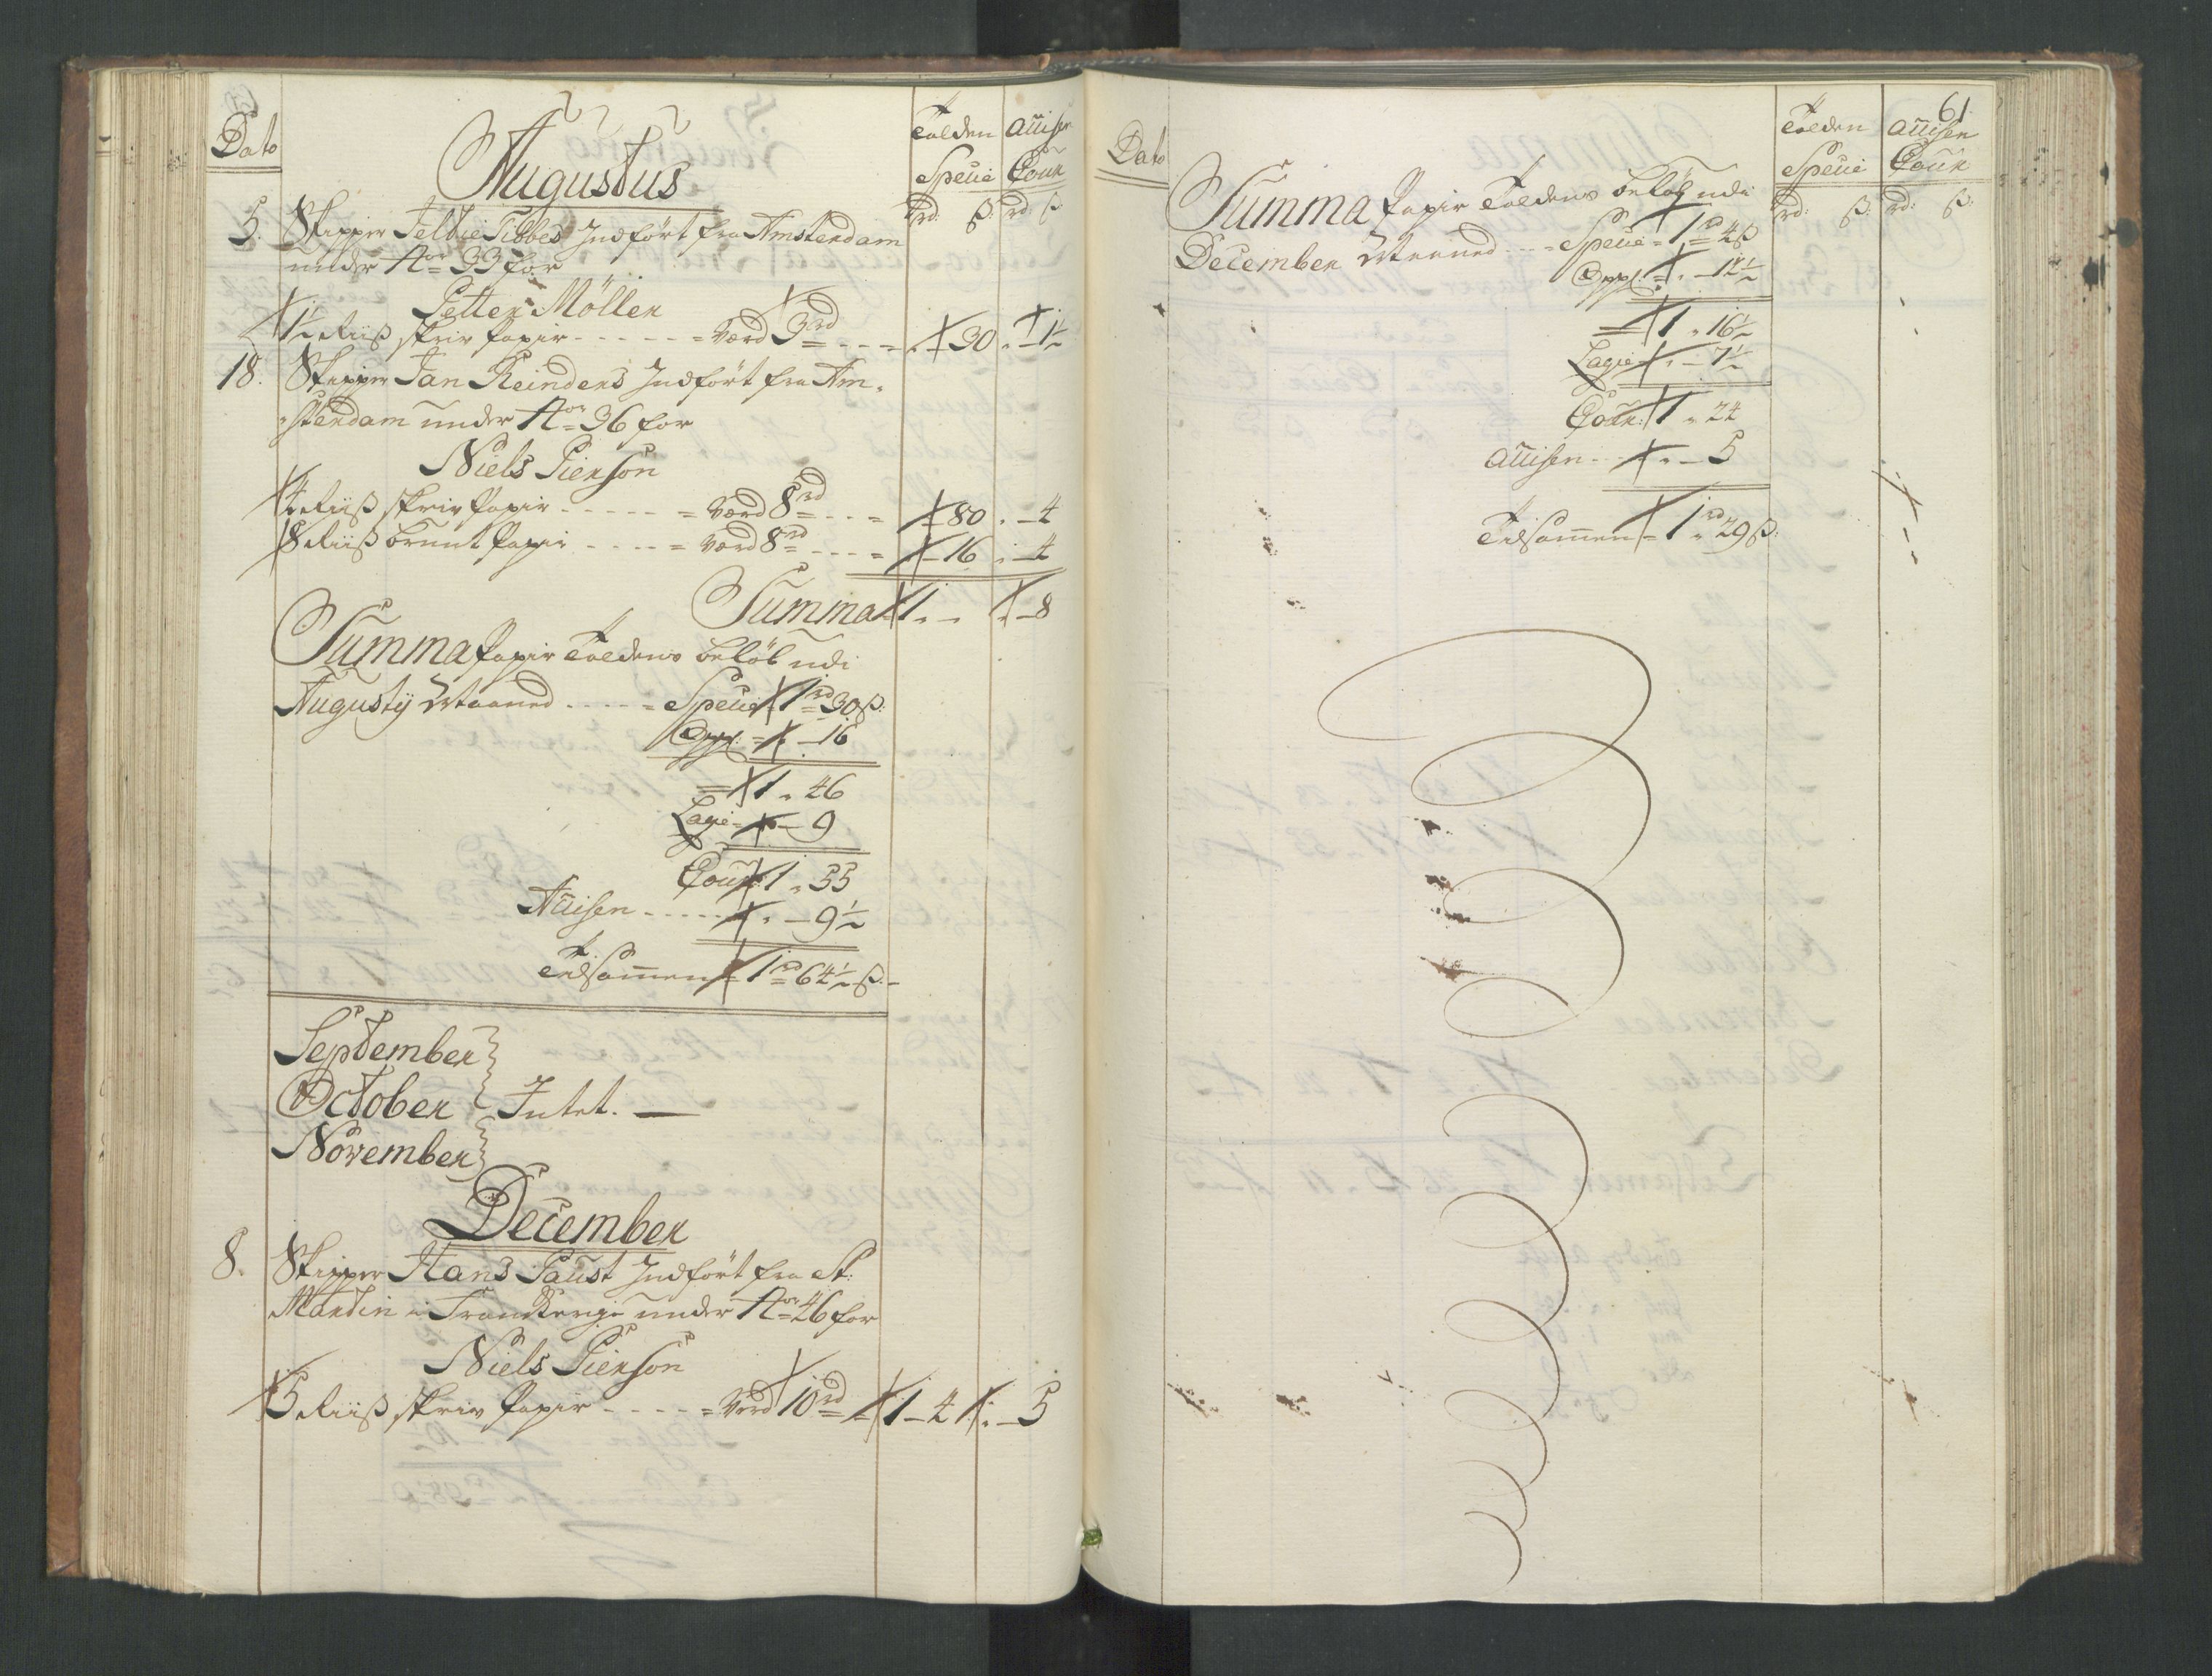 Dato
Augustus
Tolden Accisen
Specie Cour
rd: ß: rd ß
5. Skipper Jeltie Tibbes Indført fra Amsterdam
under No 33 for
Petter Møller
1½ Riis skriv Papir - - - - - = Værd 3 rd - - - = „ 30 „ - 1½
18. Skipper Jan Reinders Indført fra Am-
sterdam under No 36 for
Niels Pierson
4 Riis skriv Papir - - - - - = Værd 8 rd - - - = 80 „ - 4
8 Riis Bruunt Papir - - - - = Værd 8 rd - - - - = - 16 „ - 4
Summa 1 „ - „ - 8
Summa Papir Toldens beløb udi
Augustij Maaned - - - - - = Specie 1 rd 30 ß:
Oppl: = „ - 16
= 1 „ 46
Lagie = „ - 9
Cour: 1 „ 55
Accisen - - - - - „ - 9½
Tilsammen = 1 rd 64½ ß: -
September
October Intet. —
November
December
8. Skipper Hans Paust Indført fra St:
Martin i Frankerige under No 46 for
Niels Pierson
5 Riis skriv Papir - - - - - = Værd 10 rd = 1 - 4 „ - 5
61.
Dato
Tolden Accisen
Specie Cour
rd: ß: rd: ß:
Summa Papir Toldens beløb udi
December Maaned - - - = Specie = 1 rd 4 ß
Oppl: = „ - 12½
= 1 „ 16½
Lagie = „ - 7½
Cour: 1 „ 24
Accisen - - - „ - 5
Tilsammen = 1 rd 29 ß: